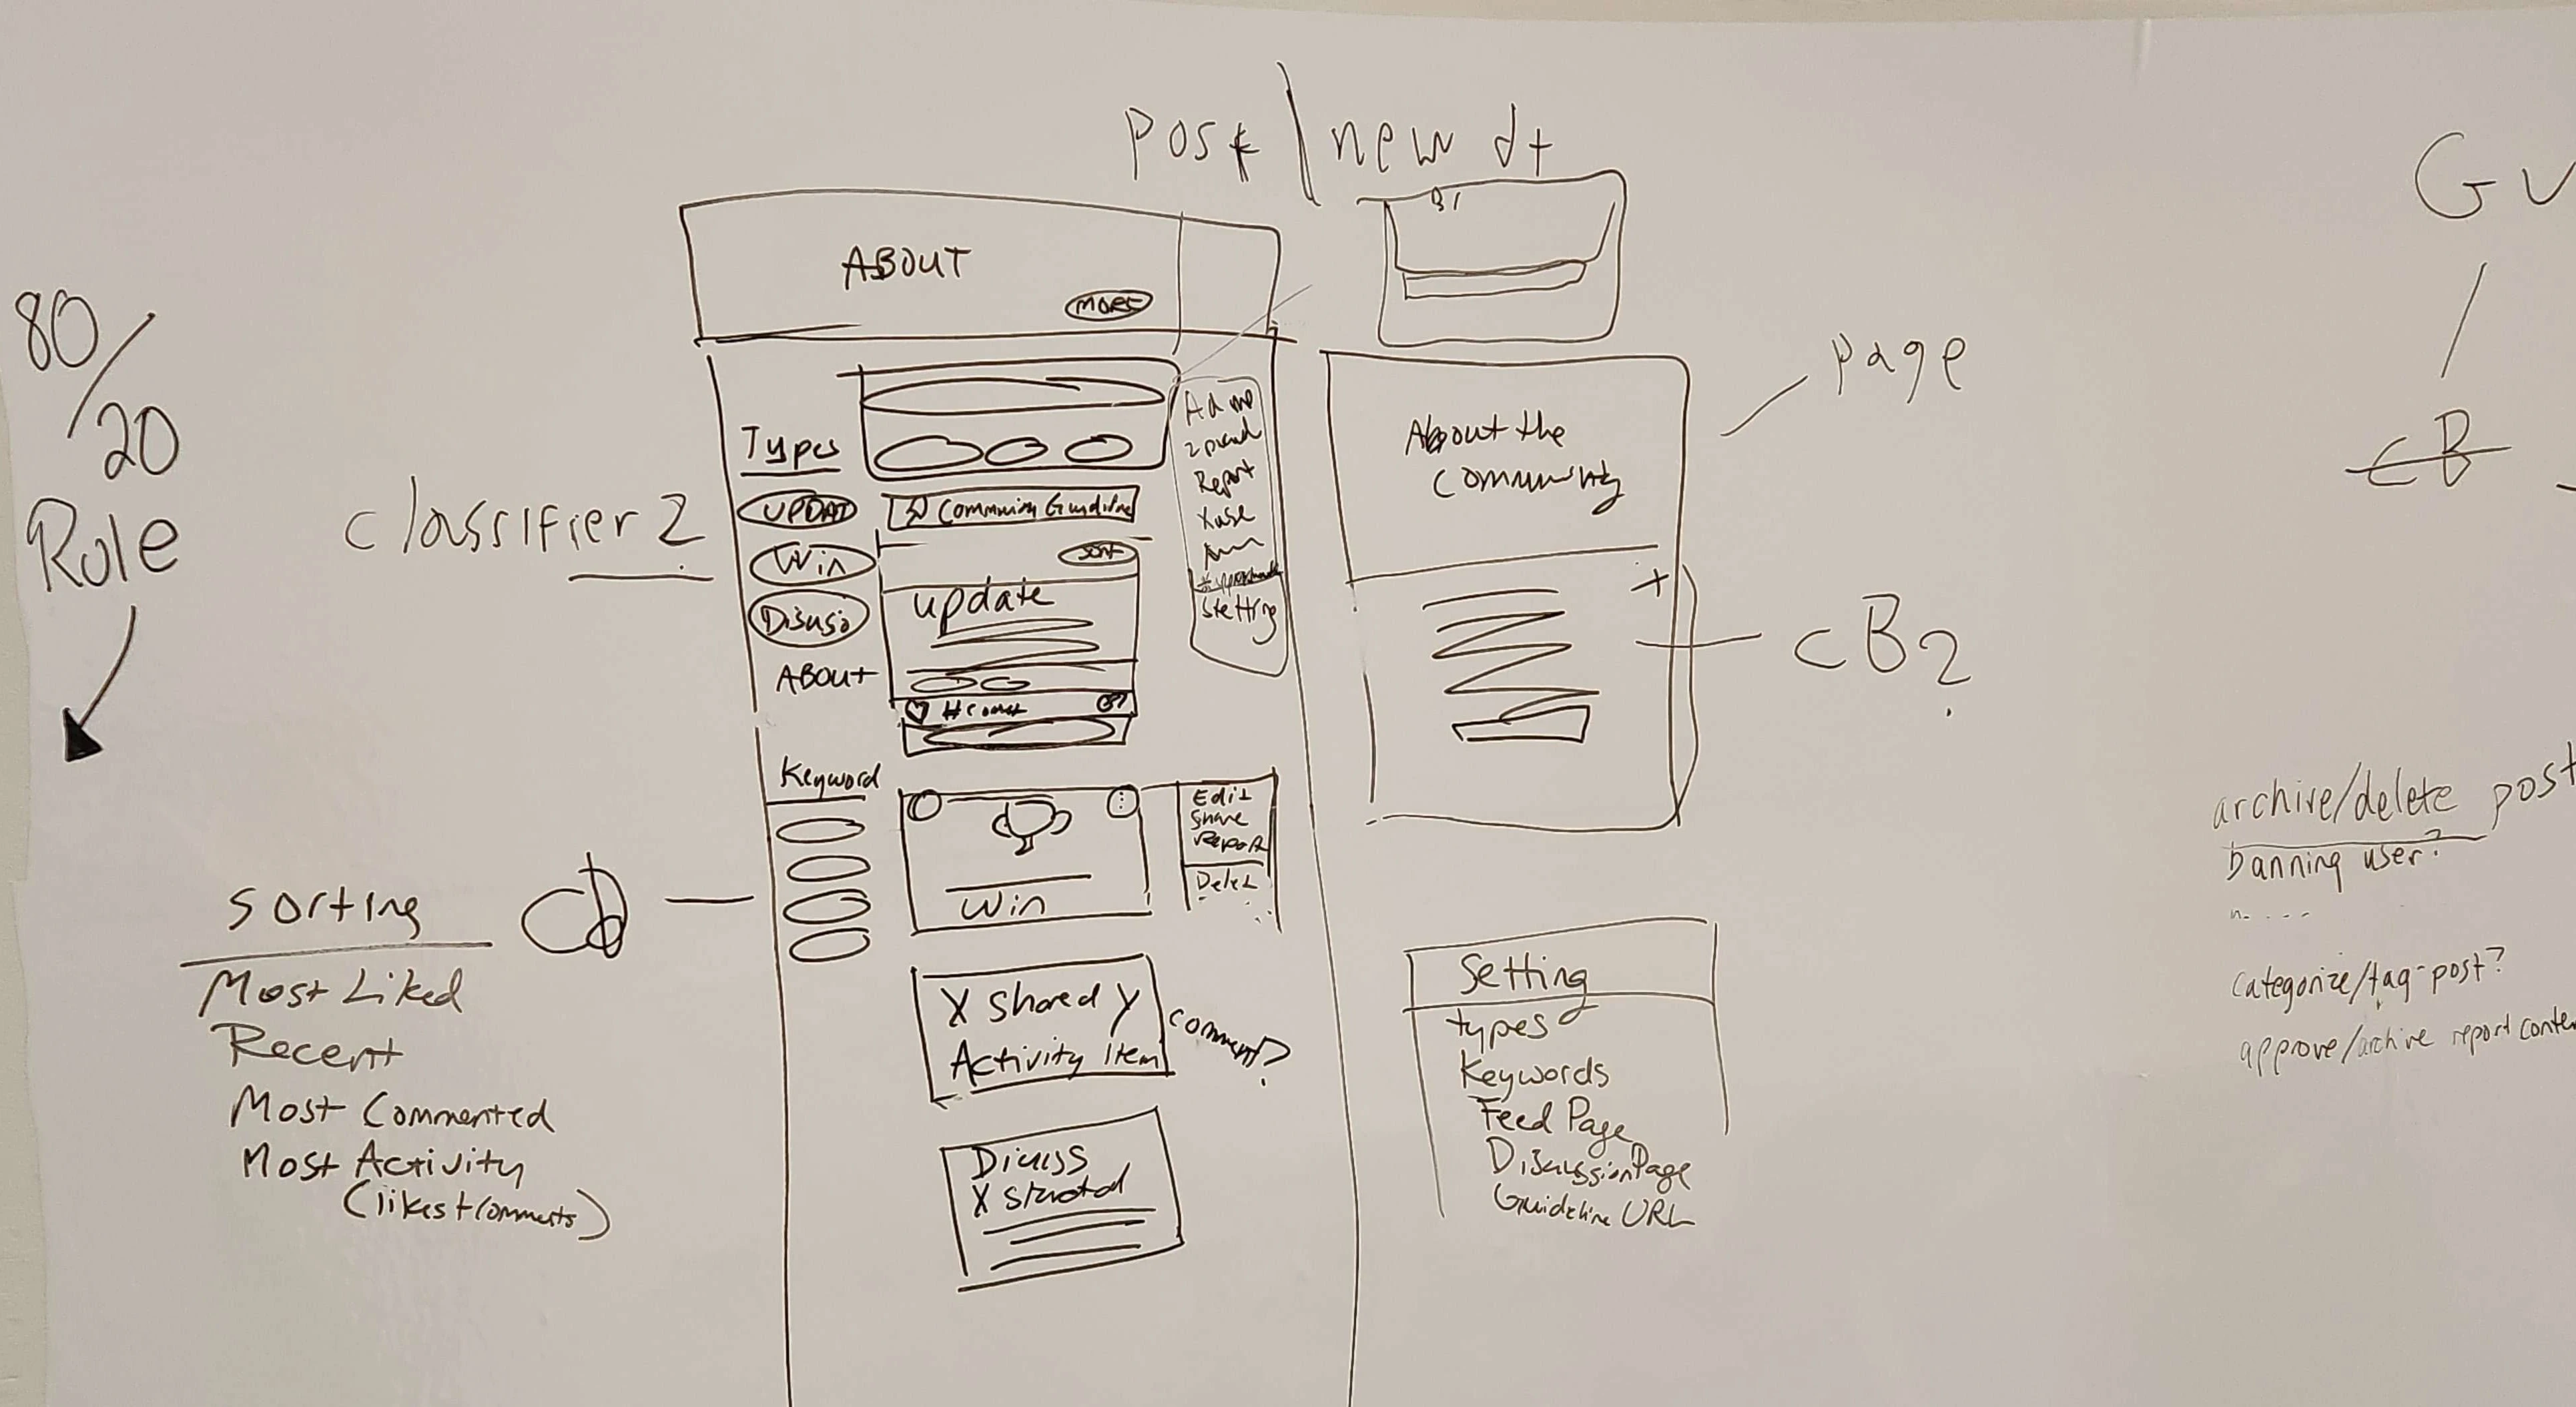 Post / new dt
B1
ABOUT
MORE
80/20
Rule
Types
UPDAT
Win
Disuso
ABOUT
Classifier 2
Community Guidline
SORT
update
# Comst
Report
Stetting
Page
About the
Community
+
CB?
Gu
CB
Keyword
Win
Edit
Share
Report
Delet
X Shared Y
Activity Item
Comment?
Dicuss
X started
cb
Sorting
Most Liked
Recent
Most Commented
Most Activity
(likes + comments)
Setting
types
Keywords
Feed Page
Discussion Page
Guideline URL
archive/delete post
banning user?
n.....
categorize/tag-post?
approve/archive report conte